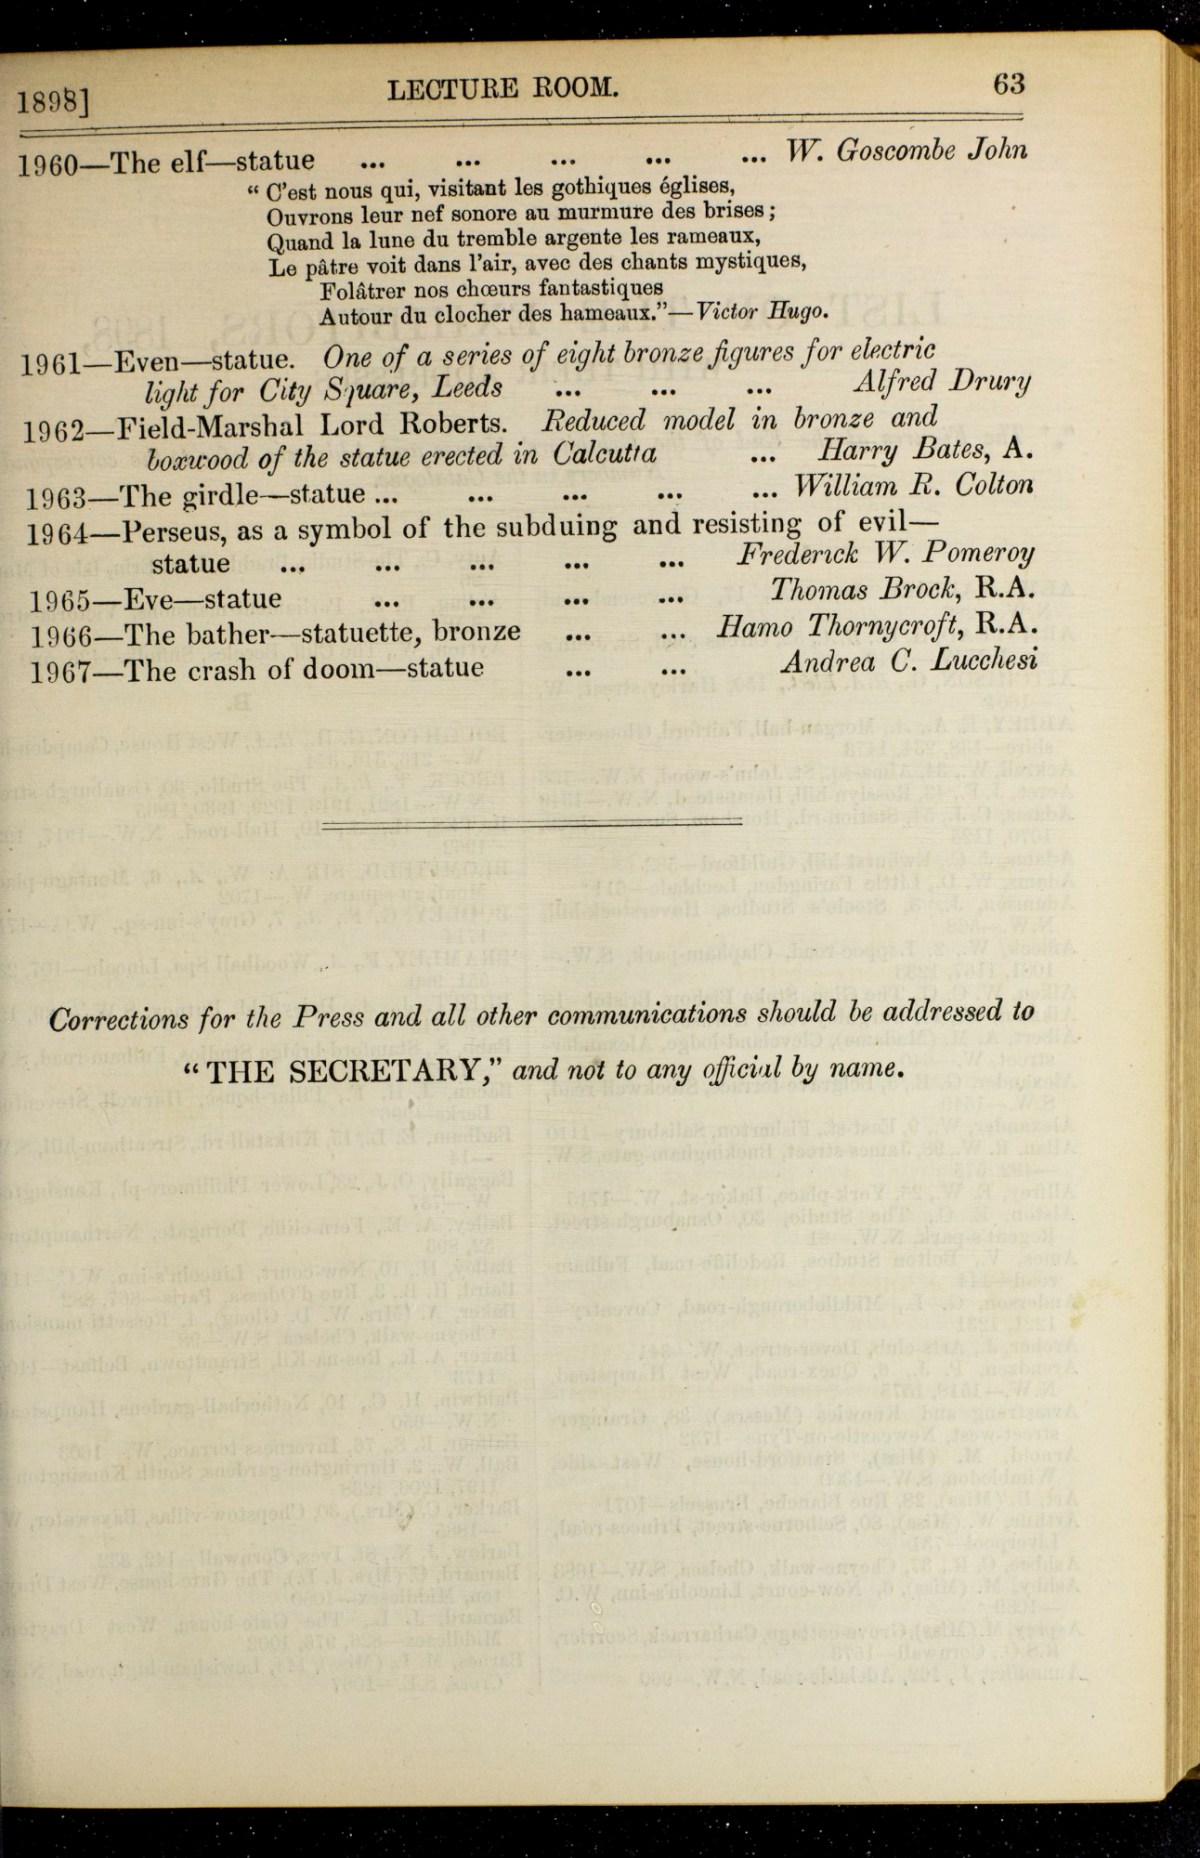 1898] LECTURE ROOM. 63
1960—The elf—statue ... ... ... ... ... W. Goscombe John
“ C’est nous qui, visitant les gothiques églises,
Ouvrons leur nef sonore au murmure des brises ;
Quand la lune du tremble argente les rameaux,
Le pâtre voit dans l’air, avec des chants mystiques,
Folâtrer nos chœurs fantastiques
Autour du clocher des hameaux.”—Victor Hugo.
1961—Even—statue. One of a series of eight bronze figures for electric
light for City Square, Leeds ... ... ... Alfred Drury
1962—Field-Marshal Lord Roberts. Reduced model in bronze and
boxwood of the statue erected in Calcutta ... Harry Bates, A.
1963—The girdle—statue ... ... ... ... ... William R. Colton
1964—Perseus, as a symbol of the subduing and resisting of evil—
statue ... ... ... ... ... Frederick W. Pomeroy
1965—Eve—statue ... ... ... ... Thomas Brock, R.A.
1966—The bather—statuette, bronze ... ... Hamo Thornycroft, R.A.
1967—The crash of doom—statue ... ... Andrea C. Lucchesi
Corrections for the Press and all other communications should be addressed to
“ THE SECRETARY,” and not to any official by name.